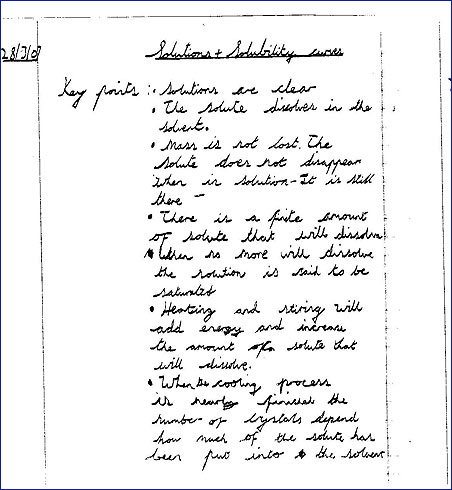 28/3/07
Solutions + Solubility curves
Key points :• Solutions are clear
• The solute disolves in the
solvent.
• Mass is not lost. The
solute does not disappear
when in solution - It is still
there -
• There is a finite amount
of solute that will dissolve
• When no more will dissolve
the solution is said to be
saturated
• Heating and stiring will
add energy and increase
the amount of solute that
will disolve.
• When the cooling process
is nearly finished the
number of crystals depend
how much of the solute has
been put into the solvent